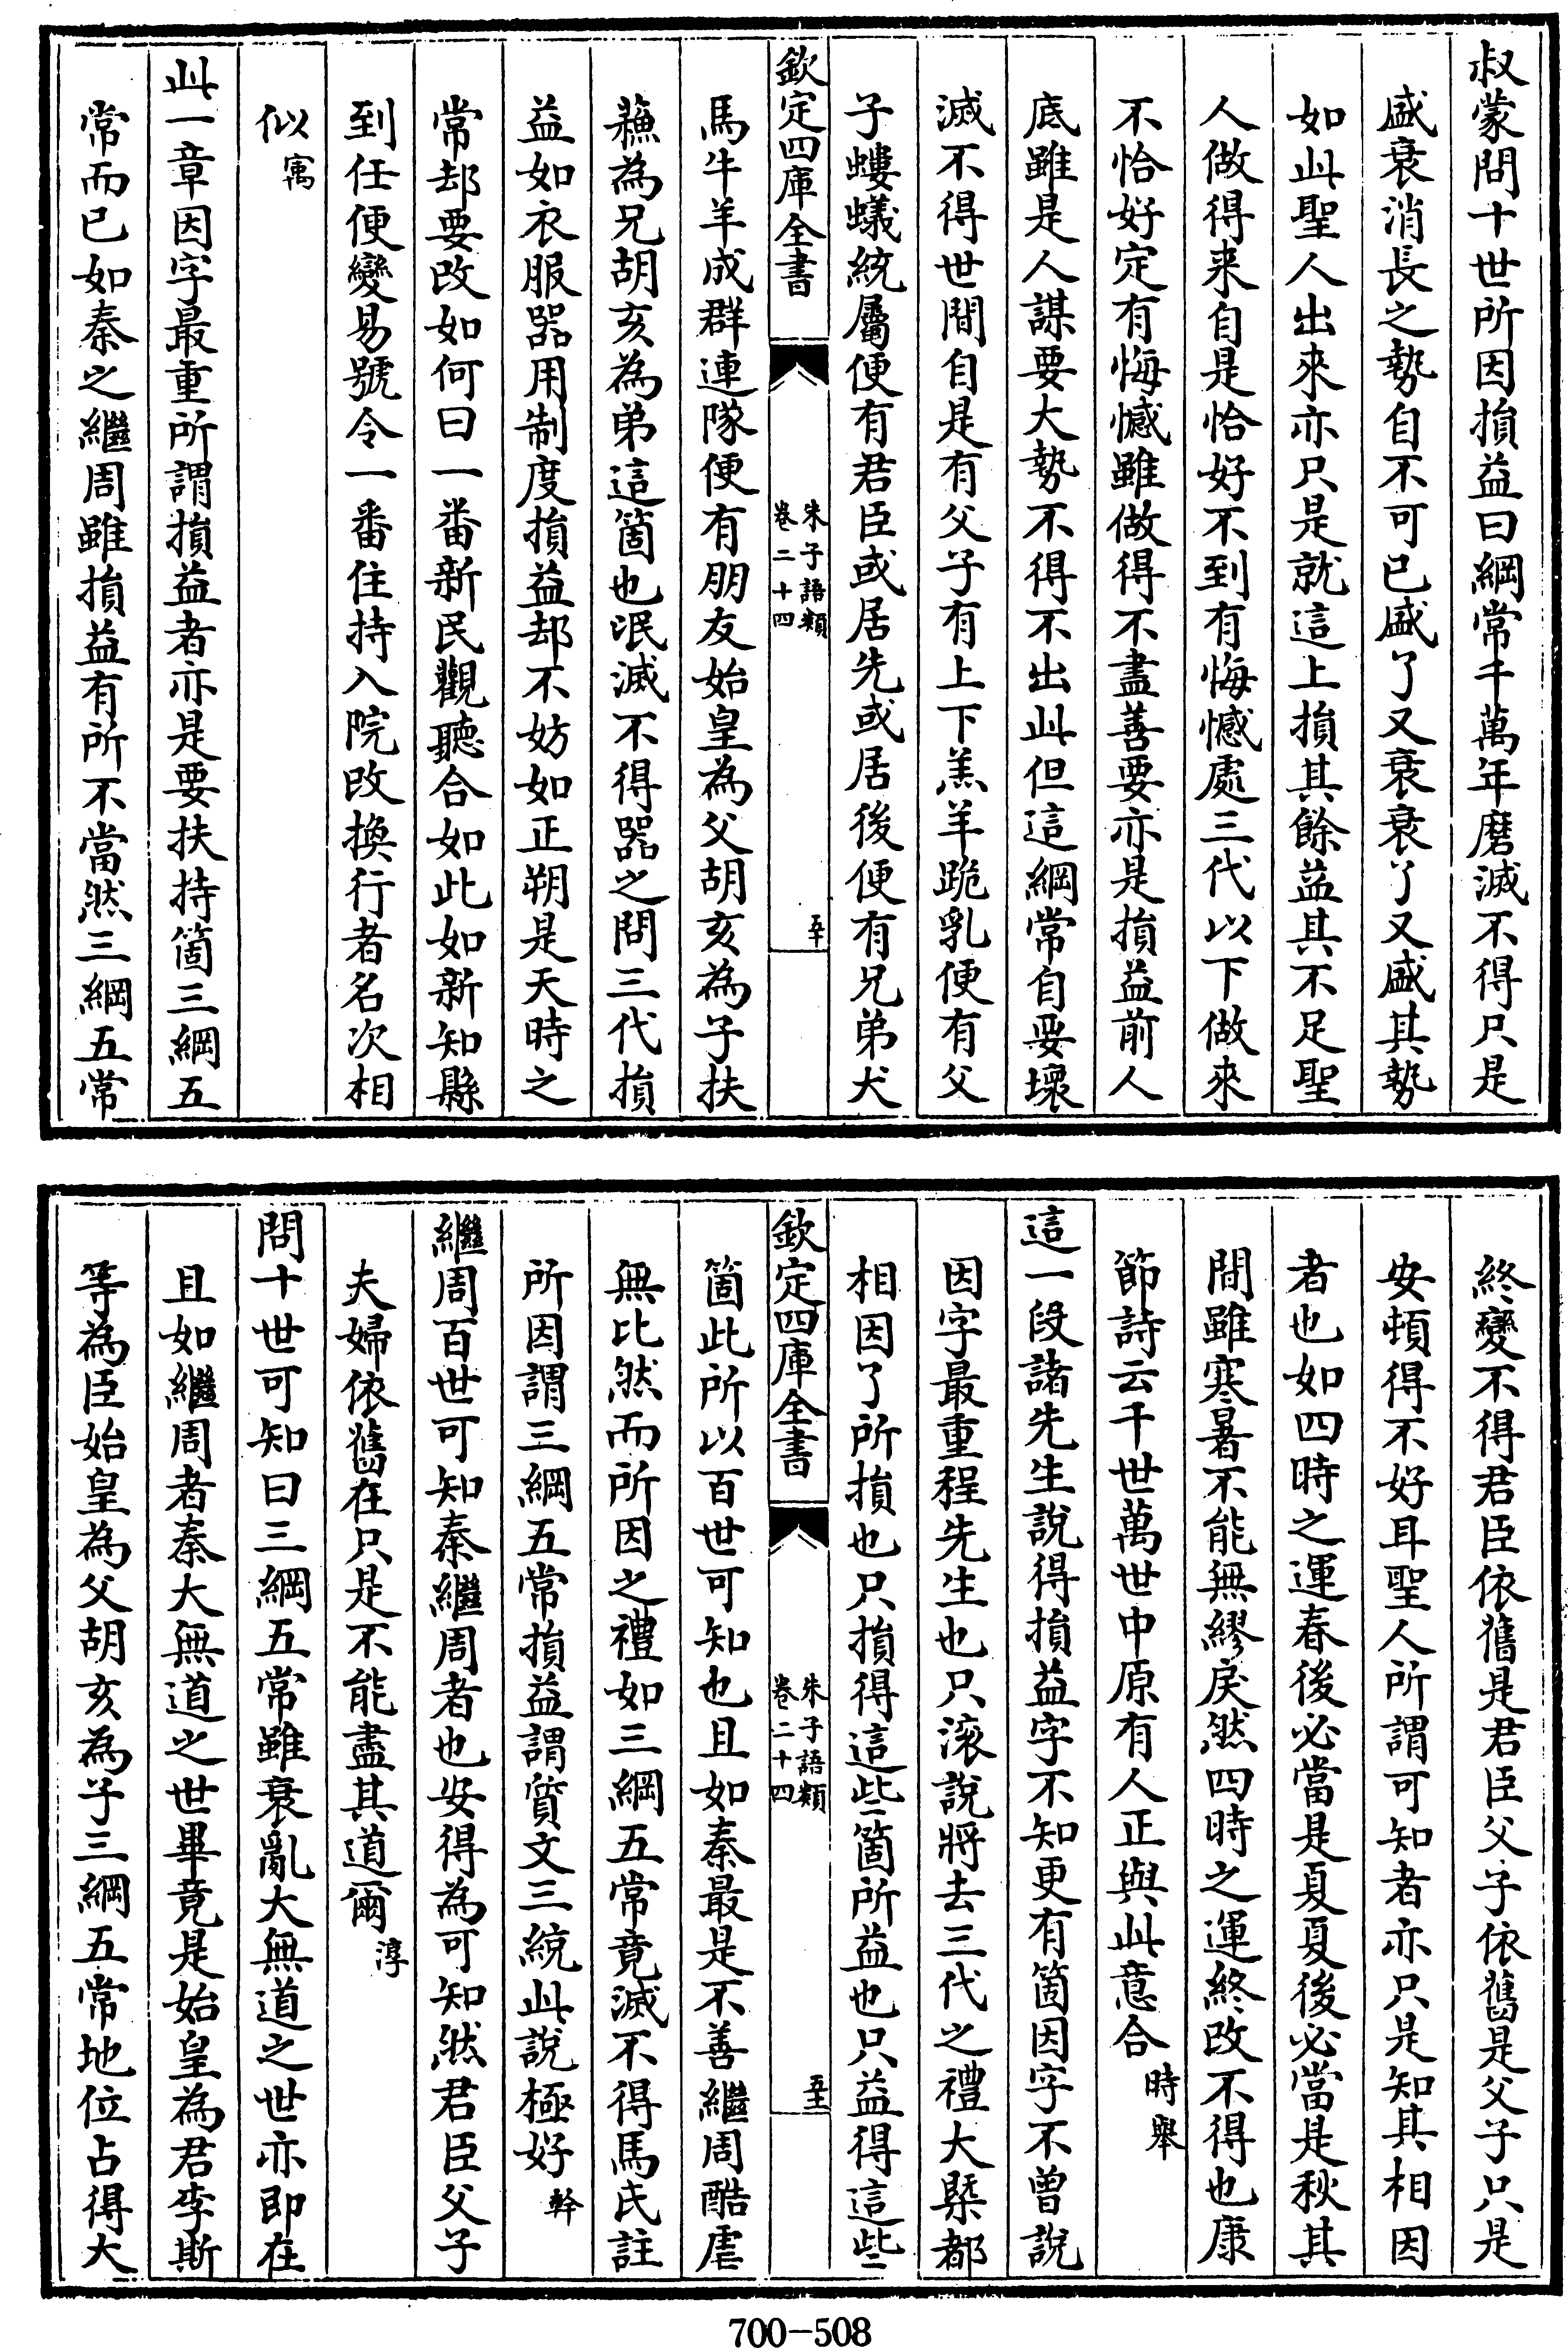 叔蒙問十世所因損益曰綱常千萬年磨滅不得只是
盛衰消長之勢自不可已盛了又衰衰了又盛其勢
如此聖人出來亦只是就這上損其餘益其不足聖
人做得来自是恰好不到有悔憾處三代以下做來
不恰好定有悔憾雖做得不盡善要亦是損益前人
底雖是人謀要大勢不得不出此但這綱常自要壞
滅不得世間自是有父子有上下羔羊跪乳便有父
子螻蟻統屬便有君臣或居先或居後便有兄弟犬
欽定四庫全書
朱子語類
卷二十四
五十
馬牛羊成群連隊便有朋友始皇為父胡亥為子扶
蘓為兄胡亥為弟這箇也泯滅不得器之問三代損
益如衣服器用制度損益却不妨如正朔是天時之
常却要改如何曰一番新民觀聽合如此如新知縣
到任便變易號令一番住持入院改換行者名次相
似寓
此一章因字最重所謂損益者亦是要扶持箇三綱五
常而已如秦之繼周雖損益有所不當然三綱五常
終變不得君臣依舊是君臣父子依舊是父子只是
安頓得不好耳聖人所謂可知者亦只是知其相因
者也如四時之運春後必當是夏夏後必當是秋其
間雖寒暑不能無繆戾然四時之運終改不得也康
節詩云千世萬世中原有人正與此意合時舉
這一段諸先生說得損益字不知更有箇因字不曾說
因字最重程先生也只滚說將去三代之禮大槩都
相因了所損也只損得這些箇所益也只益得這些
欽定四庫全書
朱子語類
卷二十四
五十一
箇此所以百世可知也且如秦最是不善繼周酷虐
無比然而所因之禮如三綱五常竟滅不得馬氏註
所因謂三綱五常損益謂質文三統此說極好幹
繼周百世可知秦繼周者也安得為可知然君臣父子
夫婦依舊在只是不能盡其道爾淳
問十世可知曰三綱五常雖衰亂大無道之世亦即在
且如繼周者秦大無道之世畢竟是始皇為君李斯
等為臣始皇為父胡亥為子三綱五常地位占得大
700-508